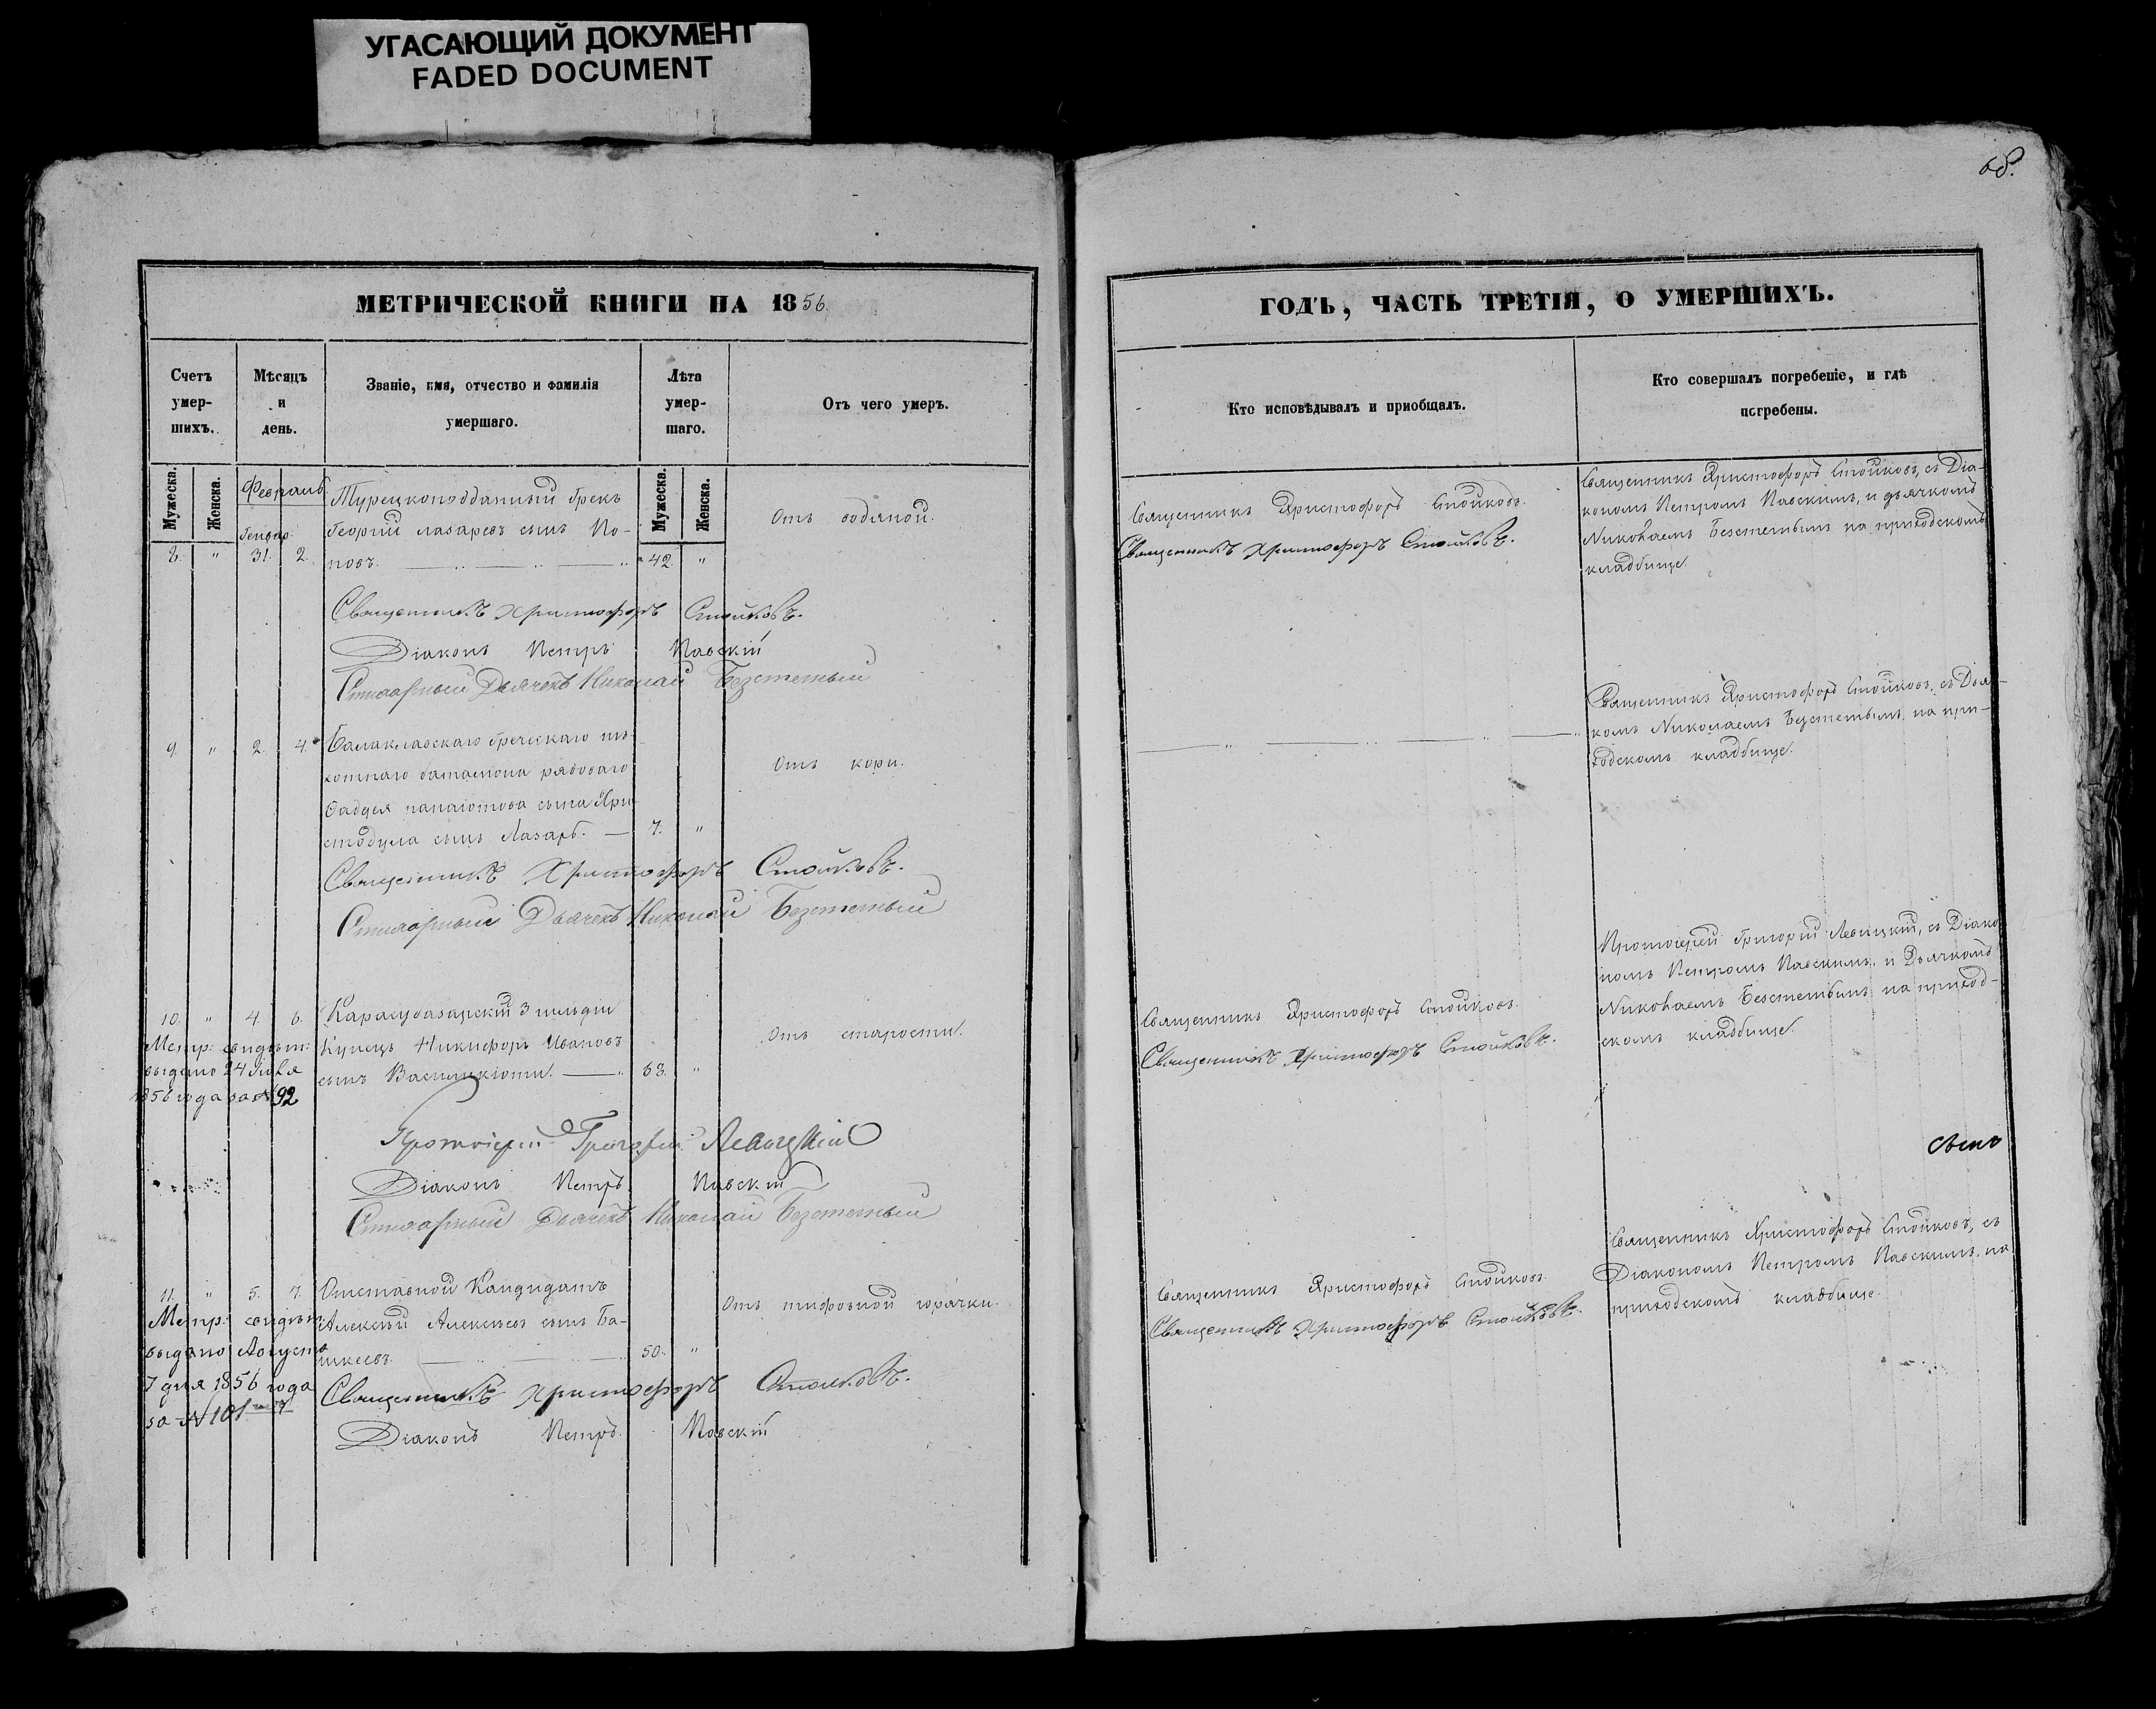 УГАСАЮЩИЙ ДОКУМЕНТ
FADED DOCUMENT
68.
МЕТРИЧЕСКОЙ КНИГИ НА 1856.
Счетъ умер-шихъ.
Мѣсяцъ и день.
Званіе, имя, отчество и фамилія умершаго.
Лѣта умер-шаго.
Отъ чего умеръ.
Мужеска.
Женска.
Февраль.
Генвар.
Мужеска.
Женска.
Турецкоподданный Грекъ
Георгій Лазаревъ сынъ По-
8. " 31. 2. повъ. 42. "
Отъ водяной.
Священникъ Христофоръ Стойковъ.
Діаконъ Петръ Павскій
Стихарный Дьячекъ Николай Безсмертный
9. " 2. 4. Балаклавскаго Греческаго пѣ-
хотнаго баталіона рядоваго
Фаддея Панаіотова сына Хри-
стодула сынъ Лазарь. 7. "
Отъ кори.
Священникъ Христофоръ Стойковъ.
Стихарный Дьячекъ Николай Безсмертный
10. " 4. 6. Карасубазарскій 3 гильдіи
Купецъ Никифоръ Ивановъ
сынъ Василикіоти. 68. "
Отъ старости.
Метр: свидѣт:
выдано 24 Іюля
1856 года за № 92
Протоіерей Григорій Левицкій
Діаконъ Петръ Павскій
Стихарный Дьячекъ Николай Безсмертный
11. " 5. 7. Отставной Кандидатъ
Алексѣй Алексѣевъ сынъ Ба-
50. "
Отъ тифозной горячки.
Метр: свидѣт:
выдано Августа
7 дня 1856 года
за № 101
Священникъ Христофоръ Стойковъ.
Діаконъ Петръ Павскій
ГОДЪ, ЧАСТЬ ТРЕТІЯ, О УМЕРШИХЪ.
Кто исповѣдывалъ и пріобщалъ.
Кто совершалъ погребеніе, и гдѣ погребены.
Священникъ Христофоръ Стойковъ.
Священникъ Христофоръ Стойковъ.
Священникъ Христофоръ Стойковъ, съ Діа-
кономъ Петромъ Павскимъ, и дьячкомъ
Николаемъ Безсмертнымъ на приходскомъ
кладбище.
Священникъ Христофоръ Стойковъ, съ Дьяч-
комъ Николаемъ Безсмертнымъ на при-
ходскомъ кладбище.
Священникъ Христофоръ Стойковъ.
Священникъ Христофоръ Стойковъ.
Протоіерей Григорій Левицкій, съ Діако-
номъ Петромъ Павскимъ, и Дьячкомъ
Николаемъ Безсмертнымъ на приход-
скомъ кладбище.
Священникъ Христофоръ Стойковъ.
Священникъ Христофоръ Стойковъ.
Священникъ Христофоръ Стойковъ, съ
Діакономъ Петромъ Павскимъ, на
приходскомъ кладбище.